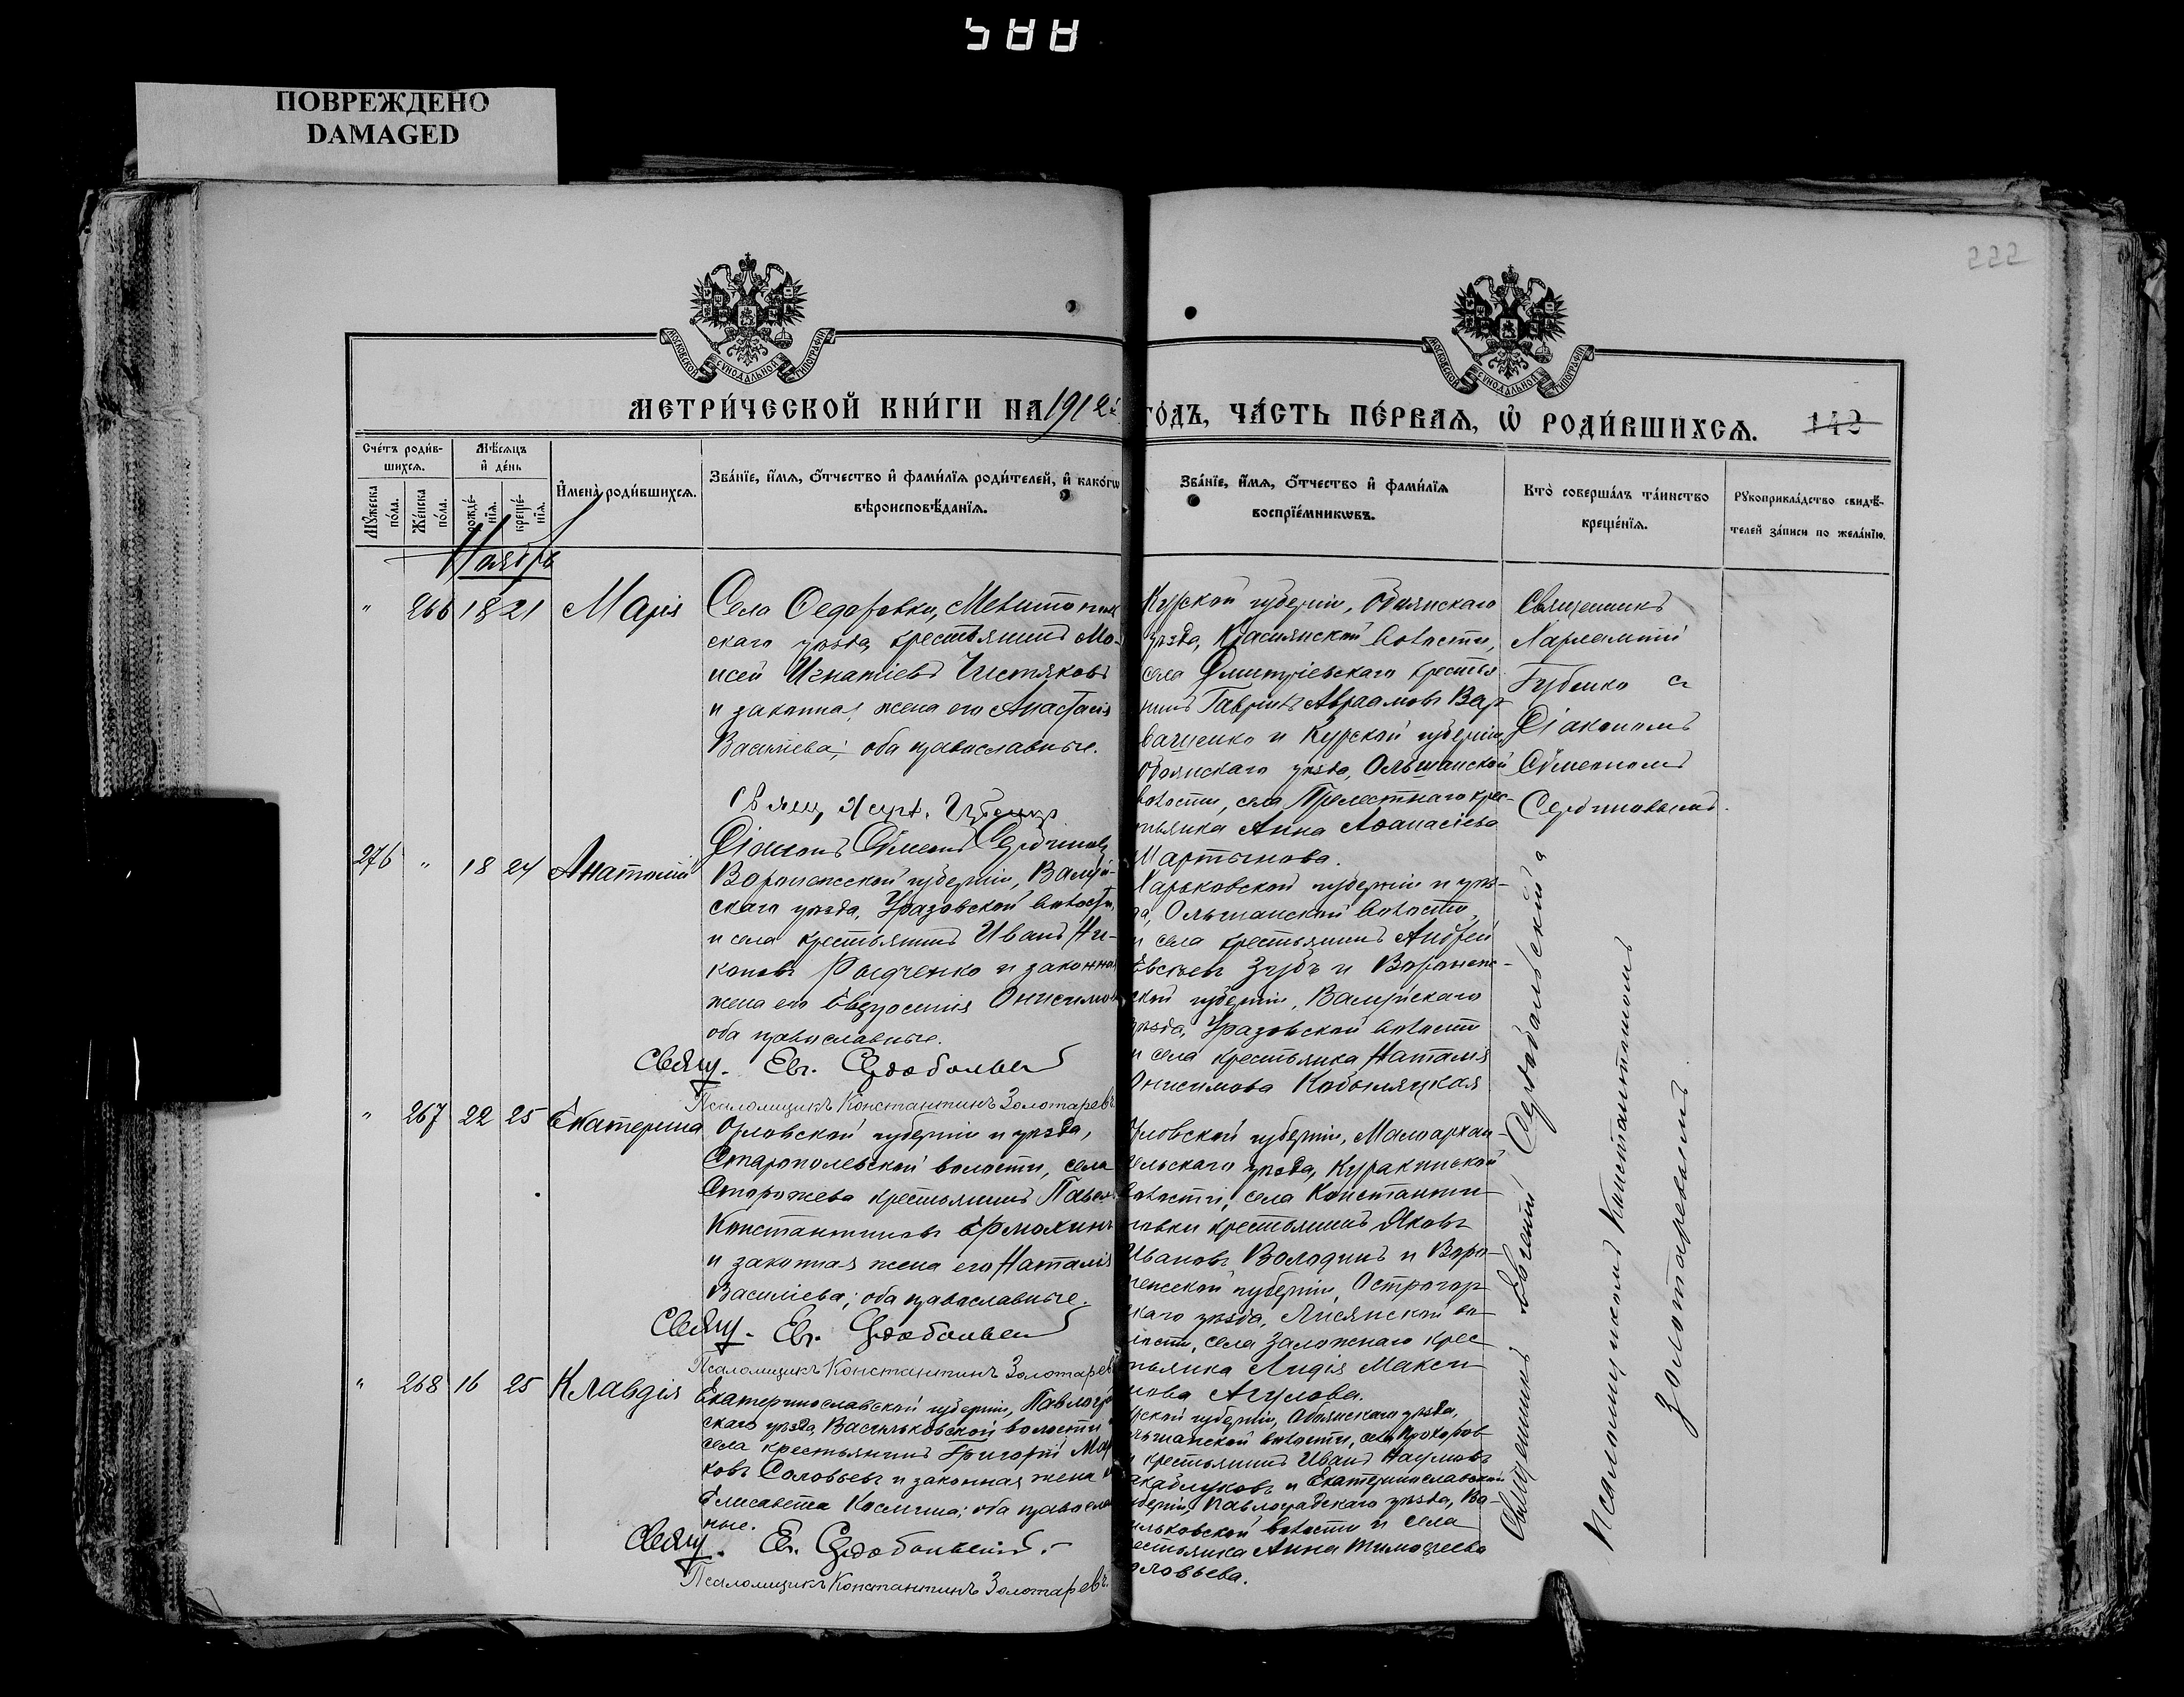 588
ПОВРЕЖДЕНО
DAMAGED
222
МОСКОВСКОЙ СѴНОДАЛЬНОЙ ТИПОГРАФІИ
МОСКОВСКОЙ СѴНОДАЛЬНОЙ ТИПОГРАФІИ
МЕТРИ́ЧЕСКОЙ КНИ́ГИ НА 1912 ГО́ДЪ, ЧА́СТЬ ПЕ́РВАѦ, Ѡ҆ РОДИ́ВШИХСѦ. 142
Сче́тъ роди́в-
шихсѧ.
Мꙋ́жеска по́ла.
Же́нска по́ла.
Мѣ́сѧцъ
и҆ де́нь
рожде́-
нїѧ.
креще́-
нїѧ.
И҆мена̀ роди́вшихсѧ.
Зва́нїе, и҆́мѧ, ѻ҆́тчество и҆ фами́лїѧ роди́телей, и҆ како́гѡ
вѣроисповѣ́данїѧ.
Зва́нїе, и҆́мѧ, ѻ҆́тчество и҆ фами́лїѧ
воспрїе́мникѡвъ.
Кто̀ соверша́лъ та́инство
креще́нїѧ.
Рꙋкоприкла́дство свидѣ́-
телей за́писи по жела́нїю.
Ноябрь
" 266 18 21 Марія
Село Ѳедоровки, Мелитополь
скаго уѣзда, крестьянинъ Мо-
исей Игнатіевъ Чистяковъ
и законная жена его Анастасія
Василіева; оба православные.
Свящ. Харл. Губенко
Діаконъ Сѵмеонъ Сердиновъ
Курской губерніи, Обоянскаго
уѣзда, Краснянской волости,
села Дмитріевскаго крестья
нинъ Гавріилъ Авраамовъ Вар
ващенко и Курской губерніи,
Обоянскаго уѣзда, Ольшанской
волости, села Прелестнаго крес-
тьянка Анна Аѳанасіева
Мартынова.
Священникъ
Харлампій
Губенко съ
Діакономъ
Сѵмеономъ
Сердиновымъ.
276 " 18 24 Анатолій
Воронежской губерніи, Валуй-
скаго уѣзда, Уразовской волости,
и села крестьянинъ Иванъ Ни-
коновъ Рындченко и законная
жена его Евфросинія Онисимова
оба православные.
Свящ. Евг. Сердобольскій
Псаломщикъ Константинъ Золотаревъ.
Харьковской губерніи и уѣз-
да, Ольшанской волости,
и села крестьянинъ Андрей
Евсѣевъ Зубъ и Воронеж-
ской губерніи, Валуйскаго
уѣзда, Уразовской волости
и села крестьянка Наталія
Онисимова Кобыляцкая
" 267 22 25 Екатерина
Орловской губерніи и уѣзда,
Старопольской волости, села
Сторожева крестьянинъ Павелъ
Константиновъ Ермохинъ
и законная жена его Наталія
Василіева; оба православные.
Свящ. Евг. Сердобольскій
Псаломщикъ Константинъ Золотаревъ
Орловской губерніи, Малоархан-
гельскаго уѣзда, Куракинской
волости, села Константи-
новки крестьянинъ Яковъ
Ивановъ Володинъ и Воро-
нежской губерніи, Острогор
скаго уѣзда, Лисянской во-
лости, села Заложнаго крес
тьянка Лидія Макси
мова Агулова.
" 268 16 25 Клавдія
Екатеринославской губерніи, Павлогра
скаго уѣзда, Васильковской волости и
села крестьянинъ Григорій Мар
ковъ Соловьевъ и законная жена его
Елисавета Космина; оба правосла
ные.
Свящ. Ев. Сердобольскій.
Псаломщикъ Константинъ Золотаревъ.
Курской губерніи, Обоянскаго уѣзда,
Ольшанской волости, села Прохоров
и крестьянинъ Иванъ Наумовъ
Какаблуковъ и Екатеринославской
губерніи, Павлоградскаго уѣзда, Ва-
сильковской волости и села
крестьянка Анна Тимоѳеева
Соловьева.
Священникъ Евгеній Сердобольскій съ
Псаломщикомъ Константиномъ
Золотаревымъ.